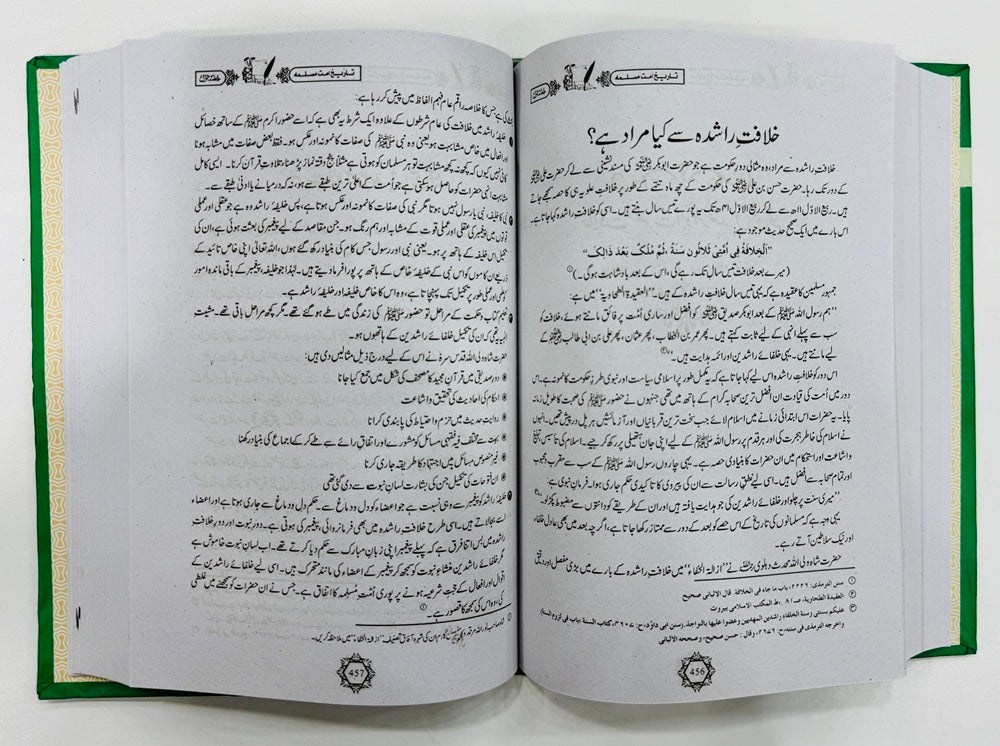 تاریخ امت مسلمہ
خلافتِ راشدہ سے کیا مراد ہے؟
خلافتِ راشدہ سے مراد، وہ مثالی دورِ حکومت ہے جو حضرت ابوبکر رضی اللہ عنہ کی مسند نشینی سے لے کر حضرت علی رضی اللہ عنہ
کے دور تک رہا۔ حضرت حسن بن علی رضی اللہ عنہ کی حکومت کے چھ ماہ تتمے کے طور پر خلافتِ علویہ ہی کا حصہ سمجھے جاتے
ہیں۔ ربیع الاوّل ۱۱ھ سے لے کر ربیع الاوّل ۴۱ھ تک یہ پورے تیس سال بنتے ہیں۔ اسی کو خلافتِ راشدہ کہا جاتا ہے۔
اس بارے میں ایک صحیح حدیث موجود ہے:
"اَلْخِلَافَةُ فِی اُمَّتِیْ ثَلَاثُوْنَ سَنَةً، ثُمَّ مُلْکٌ بَعْدَ ذَالِکَ"
(میرے بعد خلافت تیس سال تک رہے گی، اس کے بعد بادشاہت ہوگی۔) ①
جمہور مسلمین کا عقیدہ ہے کہ یہی تیس سال خلافتِ راشدہ کے ہیں۔ "العقیدۃ الطحاویۃ" میں ہے:
"ہم رسول اللہ ﷺ کے بعد ابوبکر صدیق رضی اللہ عنہ کو افضل اور ساری اُمت پر فائق مانتے ہوئے، خلافت کو
سب سے پہلے انہی کے لیے ثابت کہتے ہیں۔ پھر عمر بن الخطاب، پھر عثمان، پھر علی بن ابی طالب رضی اللہ عنہم کے
لیے مانتے ہیں۔ یہی خلفائے راشدین اور ائمہ ہدایت ہیں۔" ②
اس دور کو خلافتِ راشدہ اس لیے کہا جاتا ہے کہ یہ مکمل طور پر اسلامی سیاست اور نبوی طرزِ حکومت کا نمونہ ہے۔ اس
دور میں اُمت کی قیادت ان افضل ترین صحابہ کرام کے ہاتھ میں تھی جنہوں نے حضور ﷺ کی صحبت کا طویل زمانہ
پایا۔ یہ حضرات اس ابتدائی زمانے میں اسلام لائے جب سخت ترین قربانیاں اور آزمائشیں ہر پل درپیش تھیں۔ انہوں
نے اسلام کی خاطر ہجرت کی اور ہر قدم پر رسول اللہ ﷺ کے لیے اپنی جان ہتھیلی پر رکھ کر جیے۔ اسلام کی تاسیس، تبلیغ
و اشاعت اور استحکام میں ان حضرات کا بنیادی حصہ ہے۔ یہی چاروں رسول اللہ ﷺ کے سب سے مقرب و محبوب
اور تمام صحابہ سے افضل ہیں۔ اسی لیے تعلقِ رسالت سے ان کی پیروی کا تاکیدی حکم جاری ہوا۔ فرمانِ نبوی ہے:
"میری سنت پر چلو اور خلفائے راشدین کی جو ہدایت یافتہ ہیں اور ان کے طریقے کو دانتوں سے مضبوط پکڑو۔" ③
یہی وجہ ہے کہ مسلمانوں کی تاریخ کے اس حصے کو بعد کے دور سے ممتاز رکھا جاتا ہے، اگرچہ بعد میں بھی عادل خلفاء
اور نیک سلاطین آتے رہے۔
حضرت شاہ ولی اللہ محدث دہلوی رحمہ اللہ نے "ازالۃ الخفاء" میں خلافتِ راشدہ کے بارے میں بڑی مفصل اور دقیق
① سنن الترمذی، ح: ۲۲۲۶، باب ما جاء فی الخلافۃ، قال الالبانی صحیح
② العقیدۃ الطحاویۃ، صـ ۸۱، ط المکتب الاسلامی بیروت
③ علیکم بسنتی وسنۃ الخلفاء راشدین المھدیین وعضوا علیھا بالنواجذ. (سنن ابی داؤد، ح: ۴۶۰۷، کتاب السنۃ، باب فی لزوم السنۃ
واخرجہ الترمذی فی سننہ، ح: ۲۶۷۶، وقال: حسن صحیح، وصححہ الالبانی
456
تاریخ امت مسلمہ
کی ہے، جس کا خلاصہ راقم عام فہم الفاظ میں پیش کر رہا ہے:
خلیفۂ راشد میں خلافت کی عام شرطوں کے علاوہ ایک شرط یہ بھی ہے کہ اسے حضور اکرم ﷺ کے ساتھ خصائل
اور افعال میں خاص مشابہت ہو یعنی وہ نبی ﷺ کی صفات کا نمونہ اور عکس ہو۔ فقط بعض صفات میں مشابہ ہونا
کافی نہیں کیوں کہ کچھ نہ کچھ مشابہت تو ہر مسلمان کو ہوتی ہے مثلاً پنج وقتہ نماز پڑھنا، تلاوتِ قرآن کرنا۔ ایسی کامل
مشابہت انہی حضرات کو حاصل ہوسکتی ہے جو اُمت کے اعلیٰ ترین طبقے سے ہو، نہ کہ درمیانے یا ادنیٰ طبقے سے۔
نبی کا خلیفہ، نبی یا رسول نہیں ہوتا مگر نبی کی صفات کا نمونہ اور عکس ہوتا ہے، پس خلیفۂ راشد وہ ہے جو عقلی اور عملی
قوتوں میں پیغمبر کی عقلی اور عملی قوت کے مشابہ اور ہم رنگ ہو۔ جن مقاصد کے لیے پیغمبر کی بعثت ہوتی ہے، ان کی
تکمیل خلیفہ کے ہاتھ پر ہو۔ یعنی نبی اور رسول جس کام کی بنیاد رکھ گئے ہوں، اللہ تعالیٰ اپنی خاص تائید کے
ذریعے ان کاموں کو اس نبی کے خلیفۂ خاص کے ہاتھ پر پورا فرما دیتے ہیں۔ لہٰذا جو خلیفہ، پیغمبر کے باقی ماندہ امور
علمی اور عملی طور پر تکمیل تک پہنچاتا ہے، وہ اس کا خاص خلیفہ اور خلیفۂ راشد ہے۔
تعلیم کتاب و حکمت کے مراحل تو حضور ﷺ کی زندگی میں طے ہوگئے تھے۔ مگر کچھ مراحل باقی تھے۔ مشیت
الٰہیہ تھی کہ ان کی تکمیل خلفائے راشدین کے ہاتھوں ہو۔
حضرت شاہ ولی اللہ قدس سرہ نے اس کے لیے درج ذیل مثالیں دی ہیں:
دورِ صدیقی میں قرآنِ مجید کا مصحف کی شکل میں جمع کیا جانا
احکام کی احادیث کی تحقیق و اشاعت
روایتِ حدیث میں حزم و احتیاط کی پابندی کرانا
بہت سے مختلف فیہ فقہی مسائل کو مشورے اور اتفاقِ رائے سے طے کر کے اجماع کی بنیاد رکھنا
غیر منصوص مسائل میں اجتہاد کا طریقہ جاری کرنا
ان فتوحات کی تکمیل جن کی بشارت لسانِ نبوت سے دی گئی تھی
خلیفۂ راشد کو پیغمبر سے وہی نسبت ہے جو اعضاء کو دل و دماغ سے۔ حکم دل و دماغ سے جاری ہوتا ہے اور اعضاء
اسے بجالاتے ہیں۔ اسی طرح خلافتِ راشدہ میں بھی فرمانروائی، پیغمبر کی ہوتی ہے۔ دورِ نبوت اور دورِ خلافتِ
راشدہ میں بس اتنا فرق ہے کہ پہلے پیغمبر اپنی زبانِ مبارک سے حکم دیا کرتے تھے۔ اب لسانِ نبوت خاموش ہے
مگر خلفائے راشدین منشاءِ نبوت کو سمجھ کر پیغمبر کے اعضاء کی مانند متحرک ہیں۔ اسی لیے خلفائے راشدین کے
اقوال اور افعال کے حجتِ شرعیہ ہونے پر پوری اُمتِ مُسلمہ کا اتفاق ہے۔ جس نے ان حضرات کو سمجھنے میں غلطی
کی، وہ اس کی سمجھ کا قصور ہے۔ ①
① شاہ صاحب نور اللہ مرقدہ کا کلام ان کی شہرہ آفاق تصنیف "ازالۃ الخفاء" میں ملاحظہ کریں۔
457